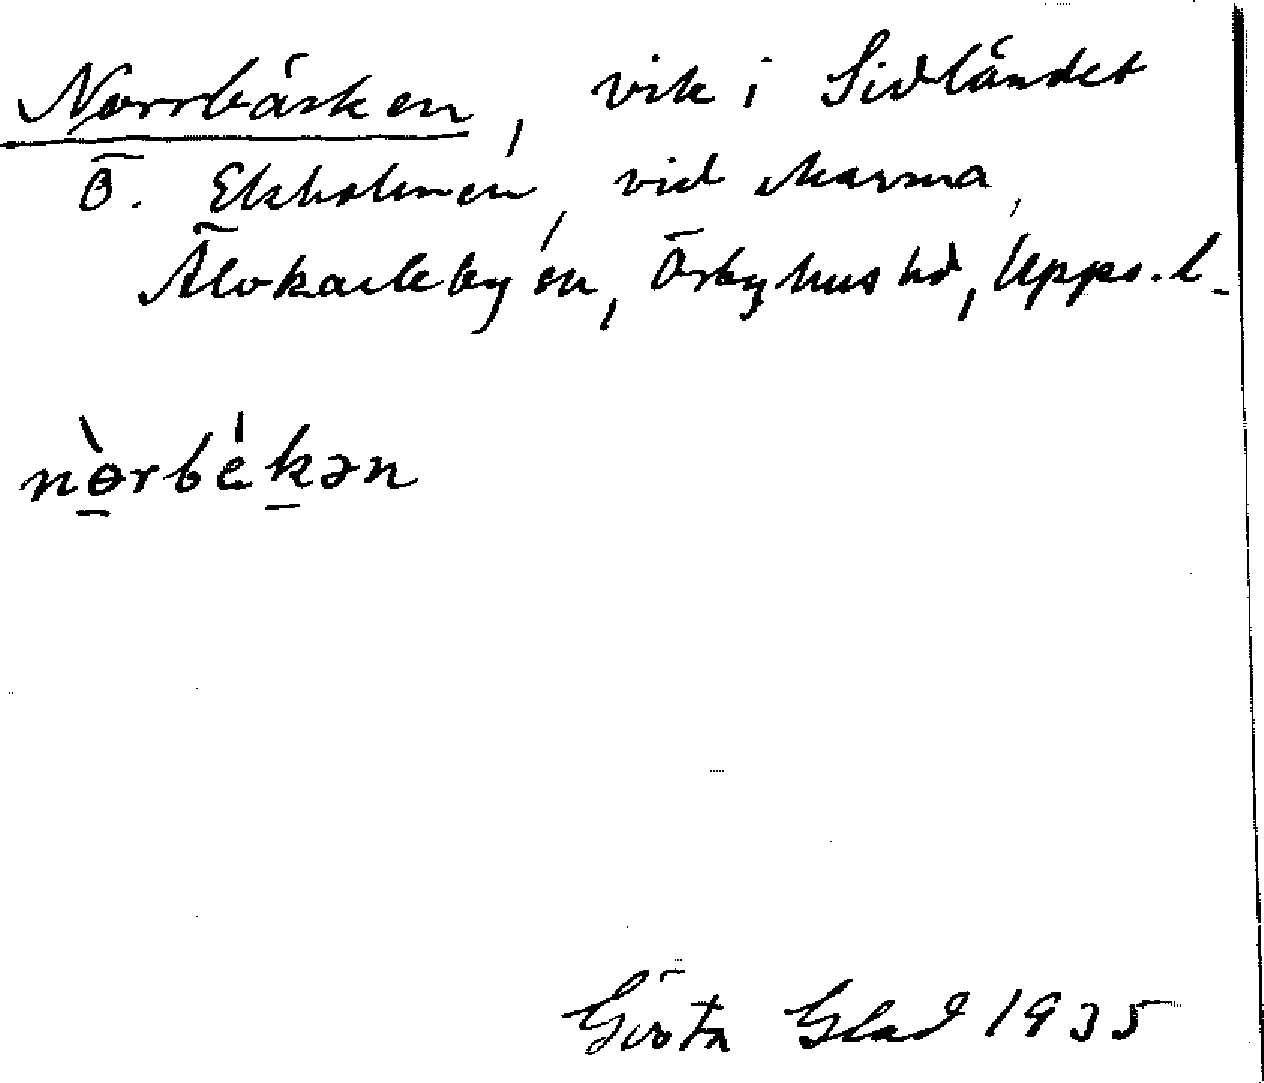 Norrbäcken, vik i Sidländet
Ö. Ekholmen, vid Marma,
Älvkarleby sn, Örbyhus hd, Upps. l.
nòrbékən
Gösta Glad 1935